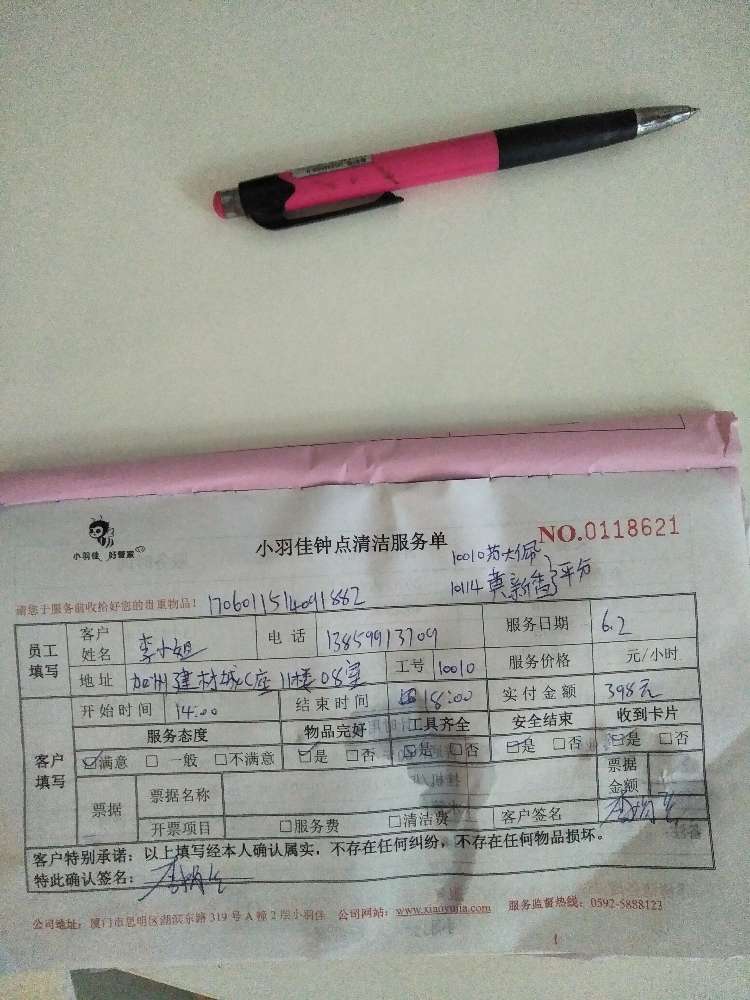 小羽佳 好管家
小羽佳钟点清洁服务单
NO.0118621
10010 苏大佩
10114 黄新香 平分
请您于服务前收拾好您的贵重物品！ 1706011514091882
员工填写 客户姓名 李小姐 电话 13859913709 服务日期 6.2
地址 加州建材城C座11楼08室 工号 10010 服务价格 元/小时
客户填写 开始时间 14:00 结束时间 18:00 实付金额 398元
服务态度 物品完好 工具齐全 安全结束 收到卡片
☑满意 □ 一般 □不满意 ☑是 □否 ☑是 □否 ☑是 □否 ☑是 □否
票据 票据名称 票据金额
开票项目 □服务费 □清洁费 客户签名
客户特别承诺：以上填写经本人确认属实，不存在任何纠纷，不存在任何物品损坏。
特此确认签名：
公司地址：厦门市思明区湖滨东路 319 号 A 幢 2 层小羽佳 公司网站：www.xiaoyujia.com 服务监督热线：0592-5888123